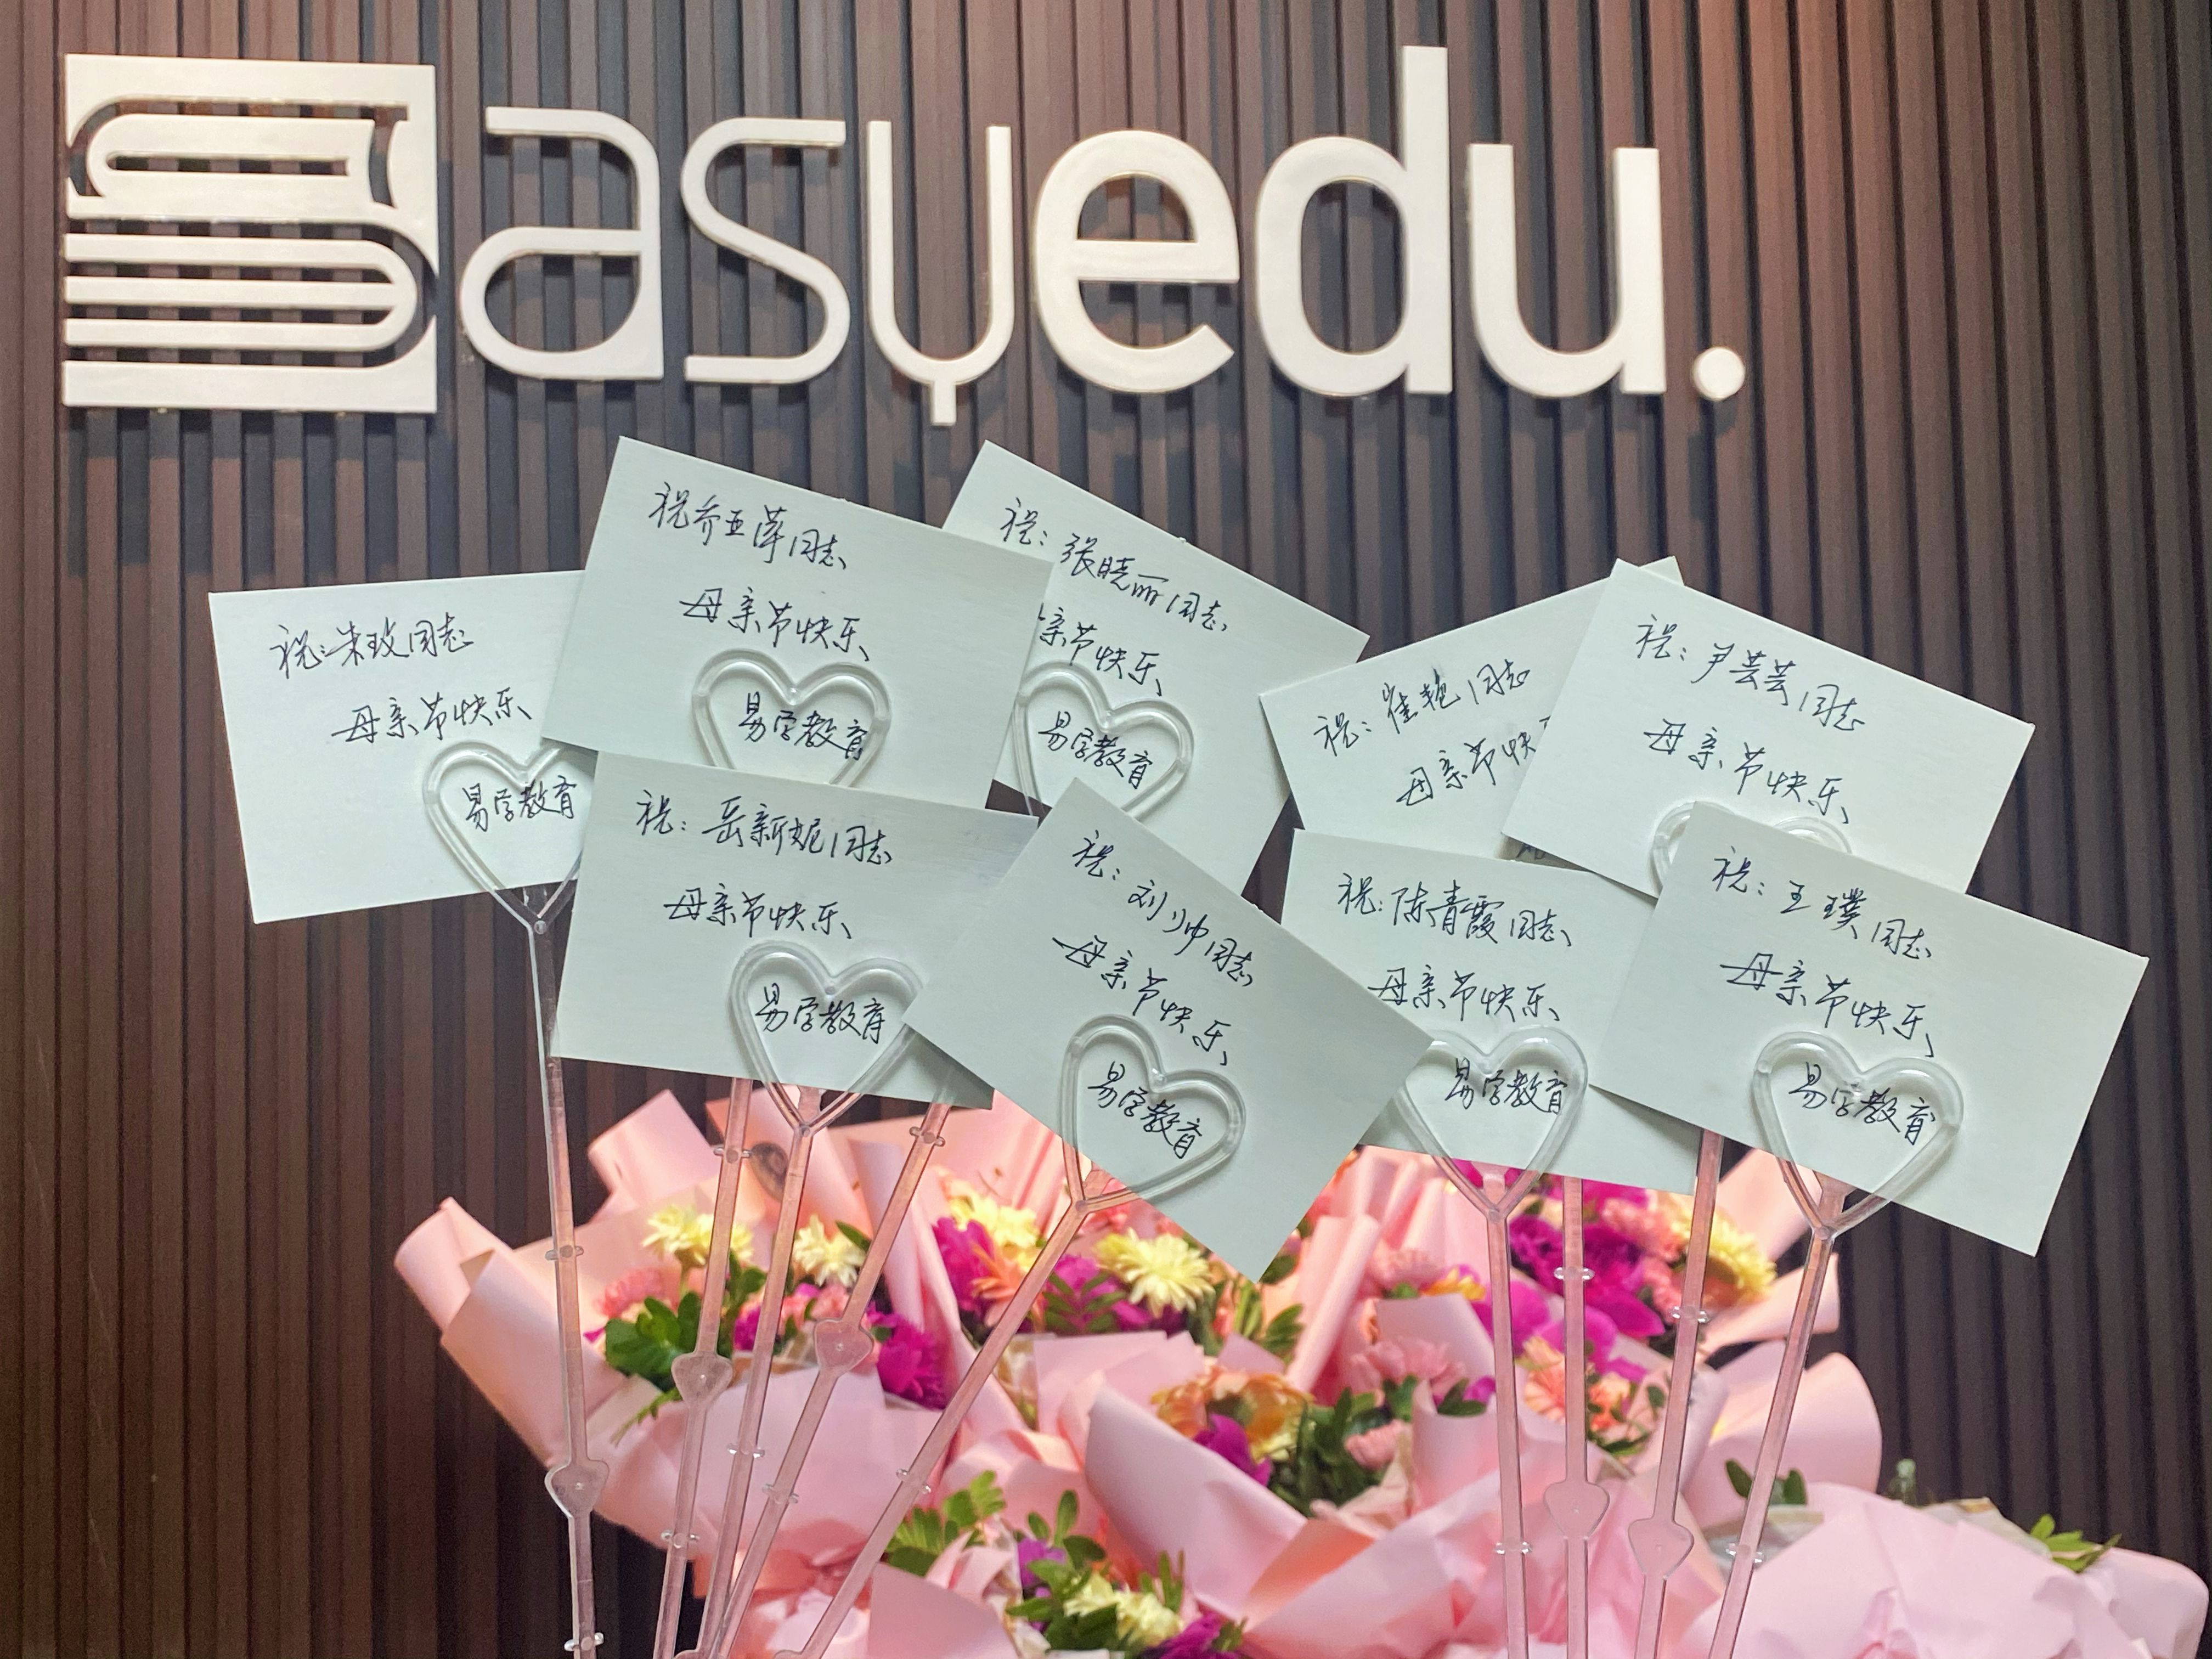 easyedu.
祝:朱玫同志
母亲节快乐
易学教育
祝乔亚萍同志
母亲节快乐
易学教育
祝:张晓丽同志
亲节快乐
易学教育
祝:崔艳同志
母亲节快
祝:尹芸芸同志
母亲节快乐
祝:岳新妮同志
母亲节快乐
易学教育
祝:刘帅同志
母亲节快乐
易学教育
祝:陈青霞同志
母亲节快乐
易学教育
祝:王璞同志
母亲节快乐
易学教育